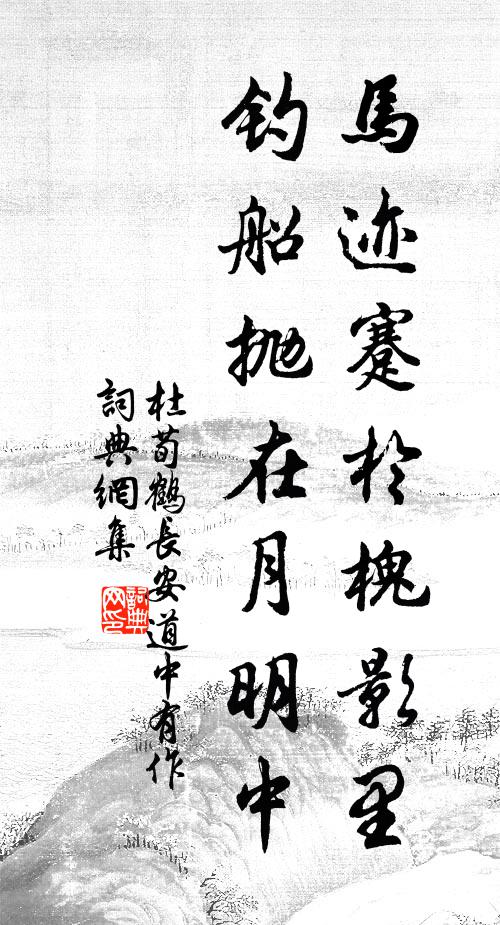 馬迹蹇於槐影里
钓船抛在月明中
杜荀鶴長安道中有作
詞典網集
詞典网印